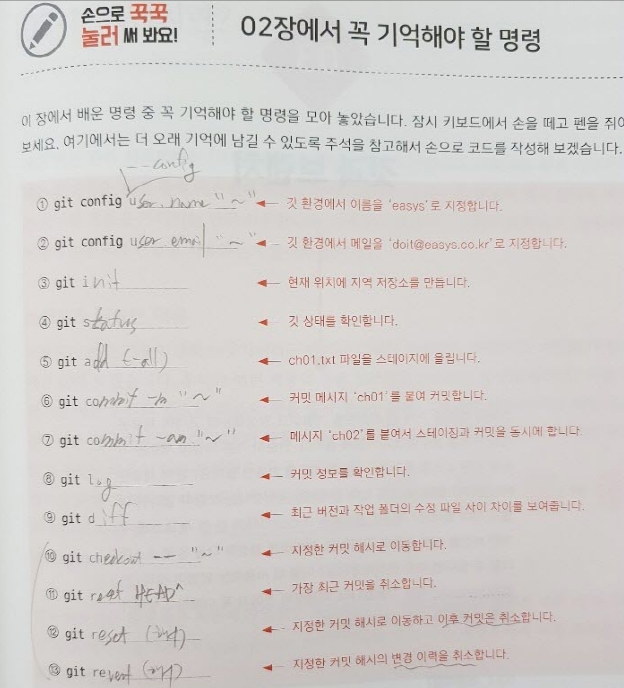 손으로 꾹꾹
눌러 써 봐요!
02장에서 꼭 기억해야 할 명령
이 장에서 배운 명령 중 꼭 기억해야 할 명령을 모아 놓았습니다. 잠시 키보드에서 손을 떼고 펜을 쥐어
보세요. 여기에서는 더 오래 기억에 남길 수 있도록 주석을 참고해서 손으로 코드를 작성해 보겠습니다.
--config
① git config user.name "~" 깃 환경에서 이름을 'easys'로 지정합니다.
② git config user email "~" 깃 환경에서 메일을 'doit@easys.co.kr'로 지정합니다.
③ git init 현재 위치에 지역 저장소를 만듭니다.
④ git status 깃 상태를 확인합니다.
⑤ git add (-all) ch01.txt 파일을 스테이지에 올립니다.
⑥ git commit -m "~" 커밋 메시지 'ch01'를 붙여 커밋합니다.
⑦ git commit -am "~" 메시지 'ch02'를 붙여서 스테이징과 커밋을 동시에 합니다.
⑧ git log 커밋 정보를 확인합니다.
⑨ git diff 최근 버전과 작업 폴더의 수정 파일 사이 차이를 보여줍니다.
⑩ git checkout -- "~" 지정한 커밋 해시로 이동합니다.
⑪ git reset HEAD^ 가장 최근 커밋을 취소합니다.
⑫ git reset 지정한 커밋 해시로 이동하고 이후 커밋은 취소합니다.
⑬ git revert 지정한 커밋 해시의 변경 이력을 취소합니다.